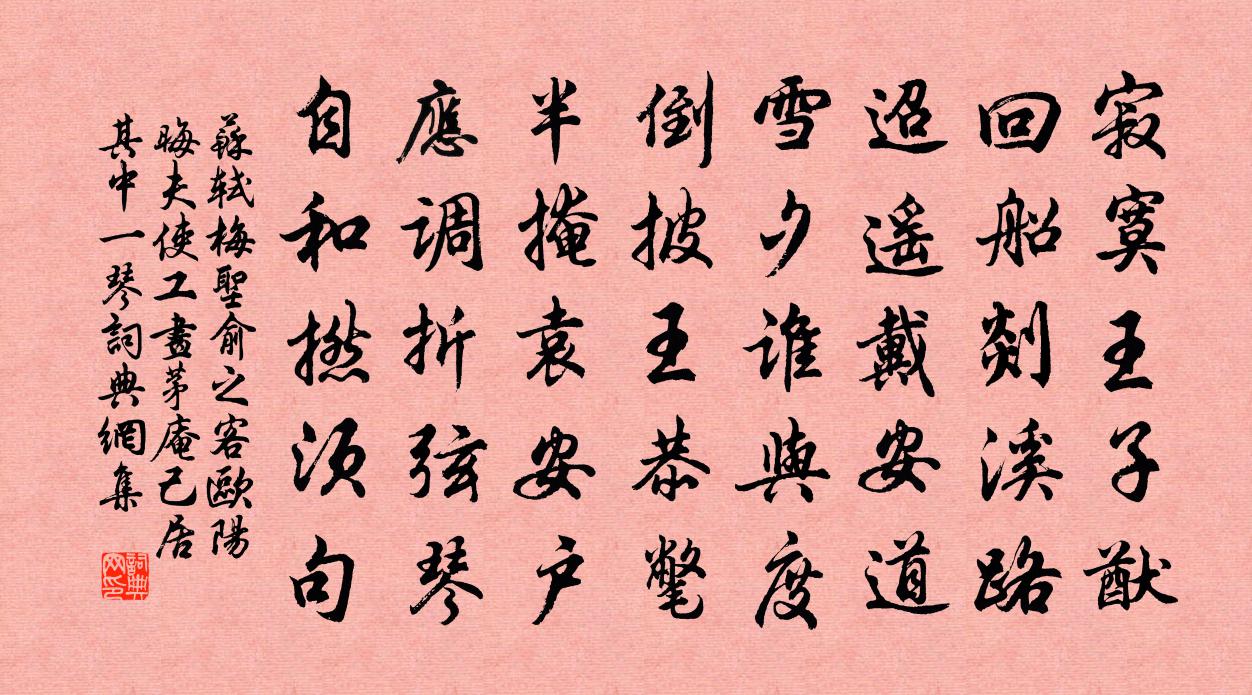 寂寞王子猷
回船剡溪路
迢遥戴安道
雪夕谁與度
倒披王恭氅
半掩袁安户
應调折弦琴
自和撚须句
蘇轼梅聖俞之客歐陽
晦夫使工畫茅庵己居
其中一琴詞典網集
詞典
网印